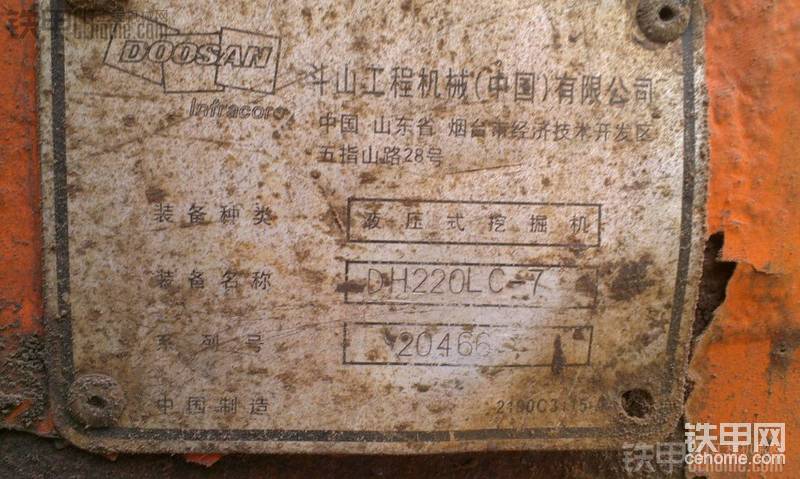 铁甲网
cehome.com
DOOSAN
Infracore
斗山工程机械(中国)有限公司
中国 山东省 烟台市经济技术开发区
五指山路28号
装备种类 液压式挖掘机
装备名称 DH220LC-7
系列号 20466
中国制造
铁甲网
cehome.com